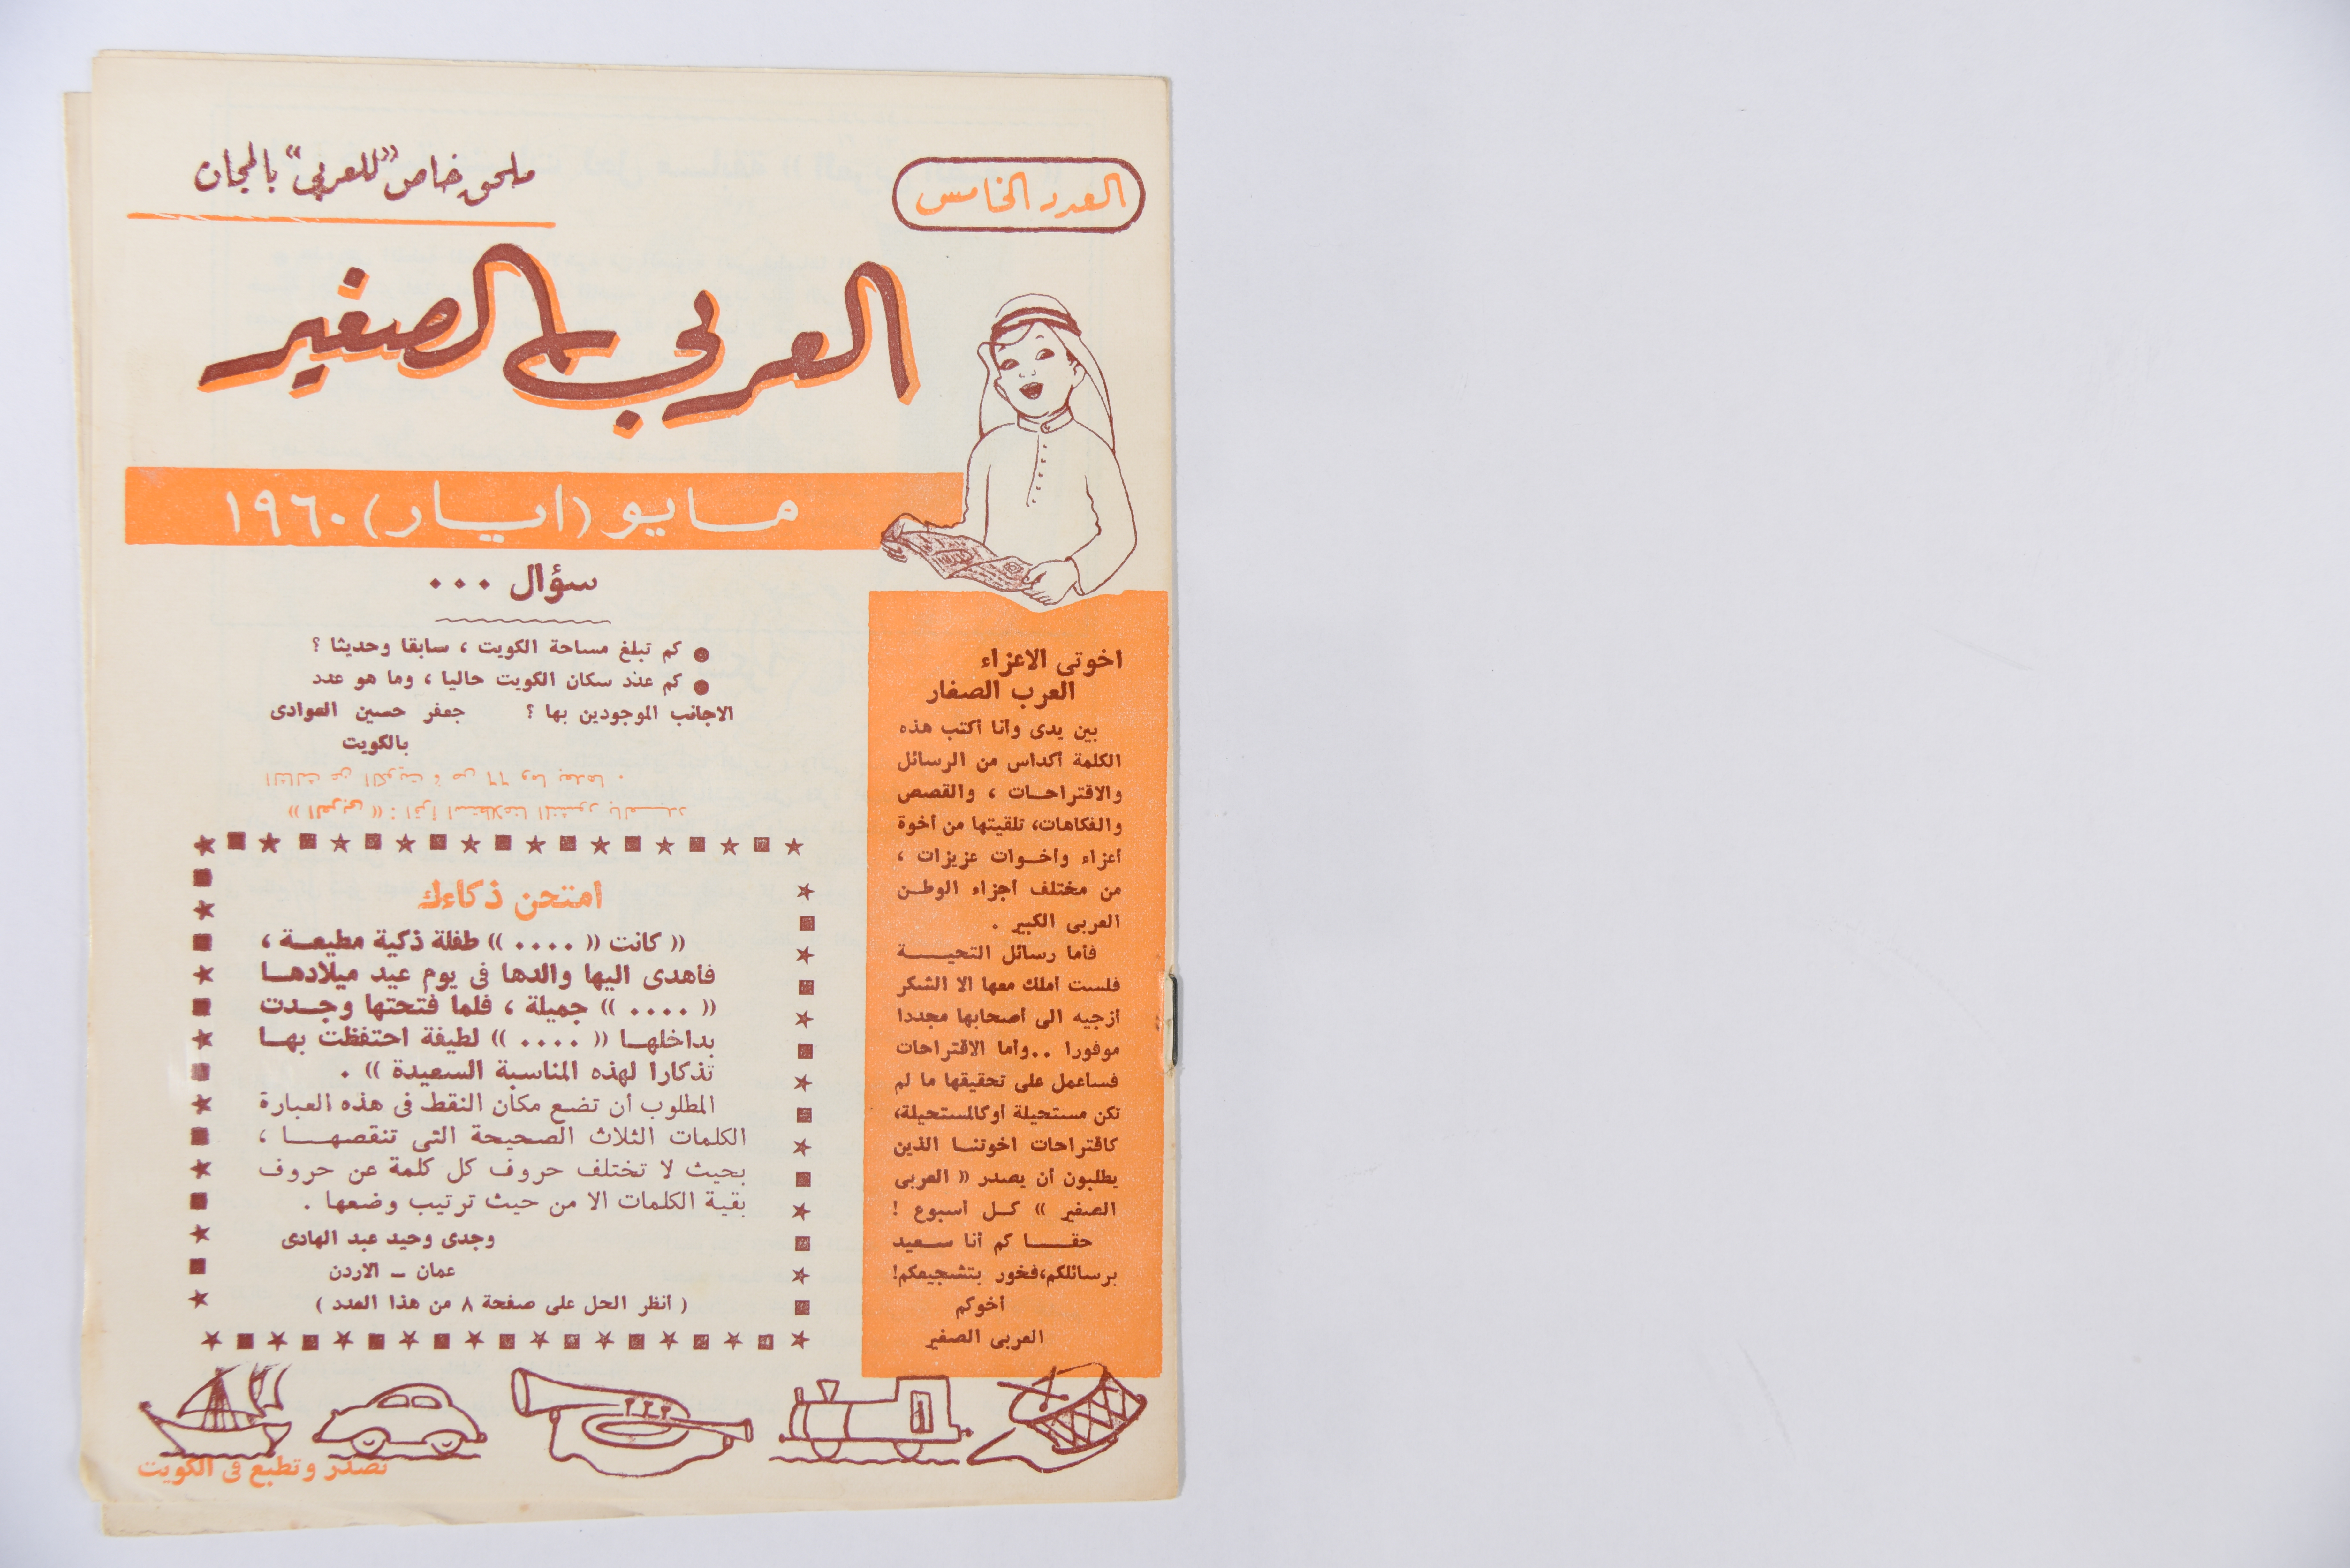 العدد الخامس
ملحق خاص "للعربي" بالمجان
العربي الصغير
مايو (ايار) ١٩٦٠
اخوتى الاعزاء
العرب الصغار
بين يدى وأنا أكتب هذه
الكلمة أكداس من الرسائل
والاقتراحات ، والقصص
والفكاهات، تلقيتها من أخوة
أعزاء وأخوات عزيزات ،
من مختلف أجزاء الوطن
العربى الكبير .
فأما رسائل التحية
فلست أملك معها الا الشكر
أزجيه الى أصحابها مجددا
موفورا .. وأما الاقتراحات
فسأعمل على تحقيقها ما لم
تكن مستحيلة أوكالمستحيلة،
كاقتراحات اخوتنا الذين
يطلبون أن يصدر (( العربى
الصغير )) كل أسبوع !
حقا كم أنا سعيد
برسائلكم،فخور بتشجيعكم!
أخوكم
العربى الصغير
سؤال ...
● كم تبلغ مساحة الكويت ، سابقا وحديثا ؟
● كم عدد سكان الكويت حاليا ، وما هو عدد
الاجانب الموجودين بها ؟ جعفر حسين العوادى
بالكويت
(( العربى )) : اقرأ استطلاعنا المنشور بالعدد
الثالث عن الكويت ، ص ٦٦ وما بعدها .
امتحن ذكاءك
(( كانت (( .... )) طفلة ذكية مطيعة ،
فأهدى اليها والدها فى يوم عيد ميلادها
(( .... )) جميلة ، فلما فتحتها وجدت
بداخلها (( .... )) لطيفة احتفظت بها
تذكارا لهذه المناسبة السعيدة )) .
المطلوب أن تضع مكان النقط فى هذه العبارة
الكلمات الثلاث الصحيحة التى تنقصها ،
بحيث لا تختلف حروف كل كلمة عن حروف
بقية الكلمات الا من حيث ترتيب وضعها .
وجدى وحيد عبد الهادى
عمان – الاردن
( أنظر الحل على صفحة ٨ من هذا العدد )
تصدر وتطبع فى الكويت